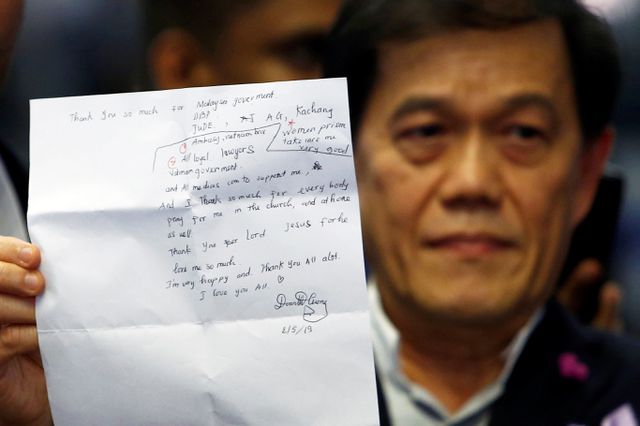 Thank you so much for Malaysian goverment.
JUDE, AG, Kachang
Ambassy, vietnam
women prison
All loyal lawyers
take care me
very good
Vietnam government.
and All medias com to support me,
And I Thank so much for every body
pray for me in the church, and at home
as well.
Thank you Lord Jesus for he
love me so much.
I'm very happy and Thank you All alot.
I love you All.
2/5/19